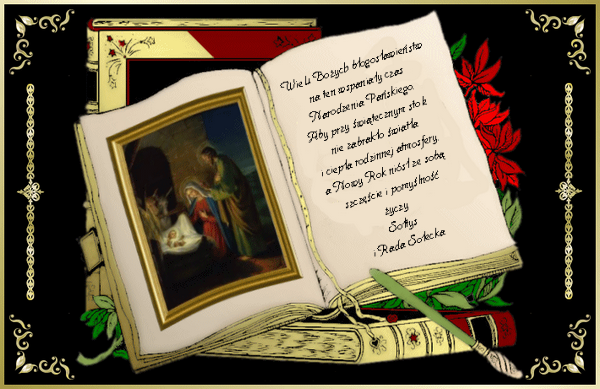 Wielu Bożych błogosławieństw
na ten wspaniały czas
Narodzenia Pańskiego.
Aby przy świątecznym stole
nie zabrakło światła
i ciepła rodzinnej atmosfery,
a Nowy Rok niósł ze sobą
szczęście i pomyślność
życzy
Sołtys
i Rada Sołecka